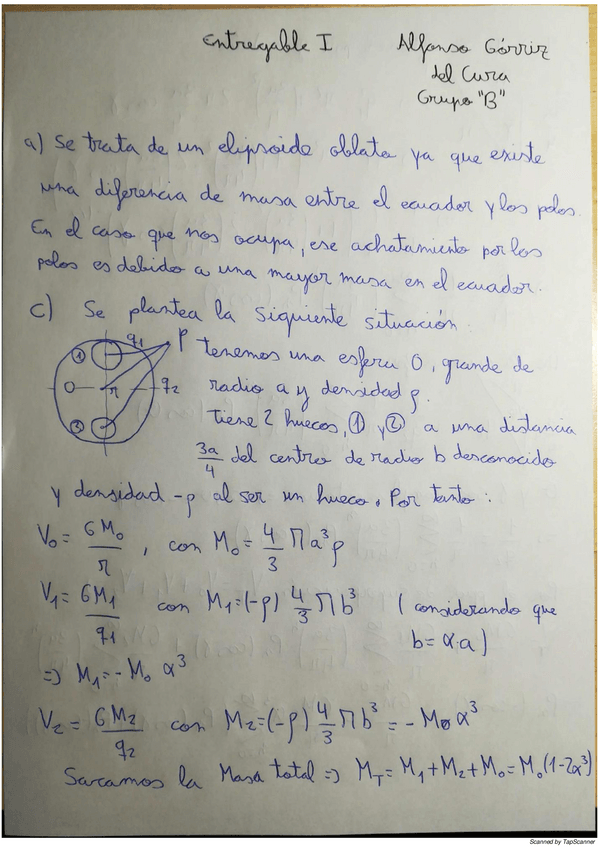 Entregable I Alfonso Górriz
del Cura
Grupo "B"
a) Se trata de un elipsoide oblato ya que existe
una diferencia de masa entre el ecuador y los polos.
En el caso que nos ocupa, ese achatamiento por los
polos es debido a una mayor masa en el ecuador.
c) Se plantea la siguiente situación:
① q₁ P tenemos una esfera O, grande de
O r q₂ radio a y densidad ρ.
② tiene 2 huecos, ① y ② a una distancia
3a/4 del centro de radio b desconocido
y densidad -ρ al ser un hueco. Por tanto:
V₀ = GM₀/r, con M₀ = 4/3 Π a³ ρ
V₁ = GM₁/q₁ con M₁ = (-ρ) 4/3 Π b³ (considerando que
b = α·a)
=> M₁ = - M₀ α³
V₂ = GM₂/q₂ con M₂ = (-ρ) 4/3 Π b³ = - M₀ α³
Sacamos la Masa total => M_T = M₁ + M₂ + M₀ = M₀ (1-2α³)
Scanned by TapScanner